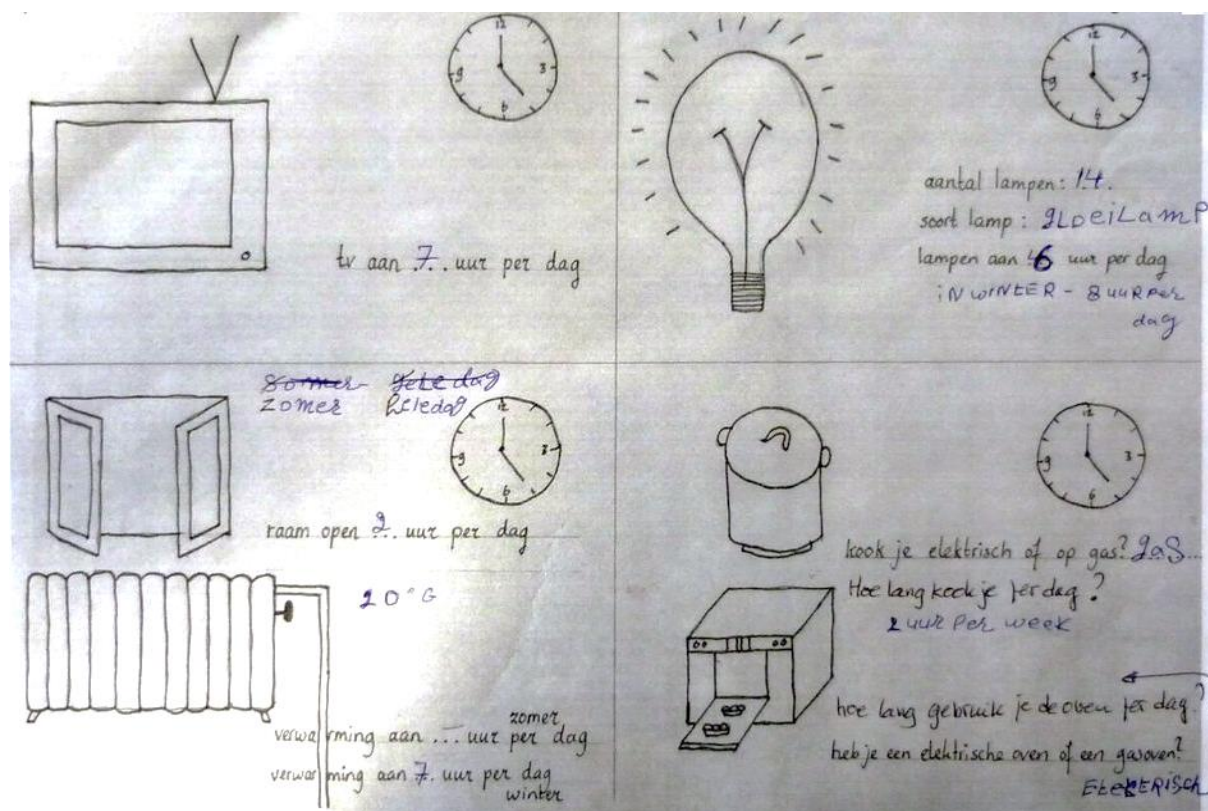 12
3
6
9
tv aan .7.. uur per dag
12
3
6
9
aantal lampen: 14.
soort lamp: gLoeiLamP
lampen aan 6 uur per dag
iN wiNtER - 8 uuR per
dag
zomer heledag
12
3
6
9
raam open 2.. uur per dag
20°C
zomer
verwarming aan ... uur per dag
verwarming aan 7. uur per dag
winter
12
3
6
9
kook je elektrisch of op gas? gas...
Hoe lang kook je per dag?
2 uur Per week
hoe lang gebruik je de oven per dag?
heb je een elektrische oven of een gasoven?
ELEKtERiSch